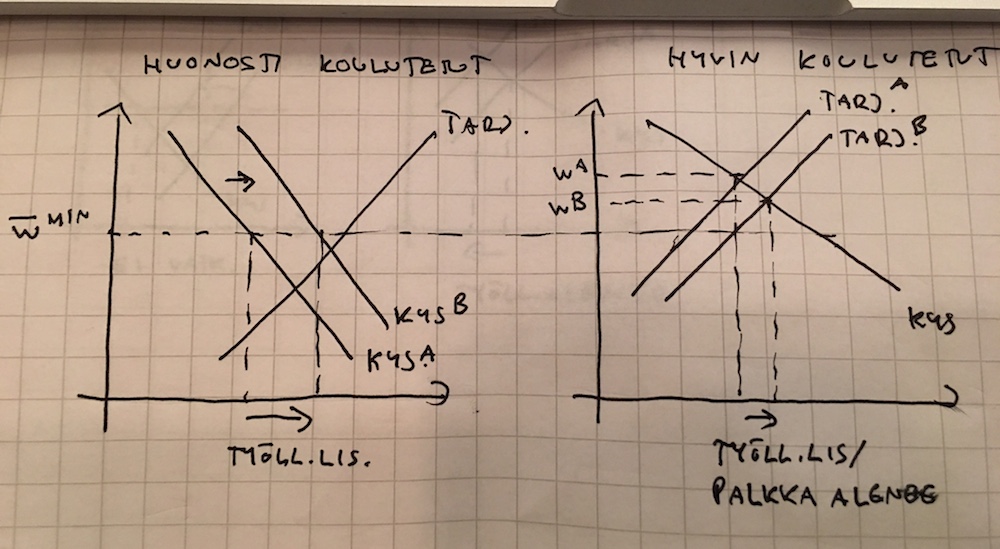 HUONOSTI KOULUTETUT
TARJ.
W̅ MIN
KYS B
KYS.A
TYÖLL.LIS.
HYVIN KOULUTETUT
TARJ.A
TARJ.B
WA
WB
KYS
TYÖLL.LIS/
PALKKA ALENEE